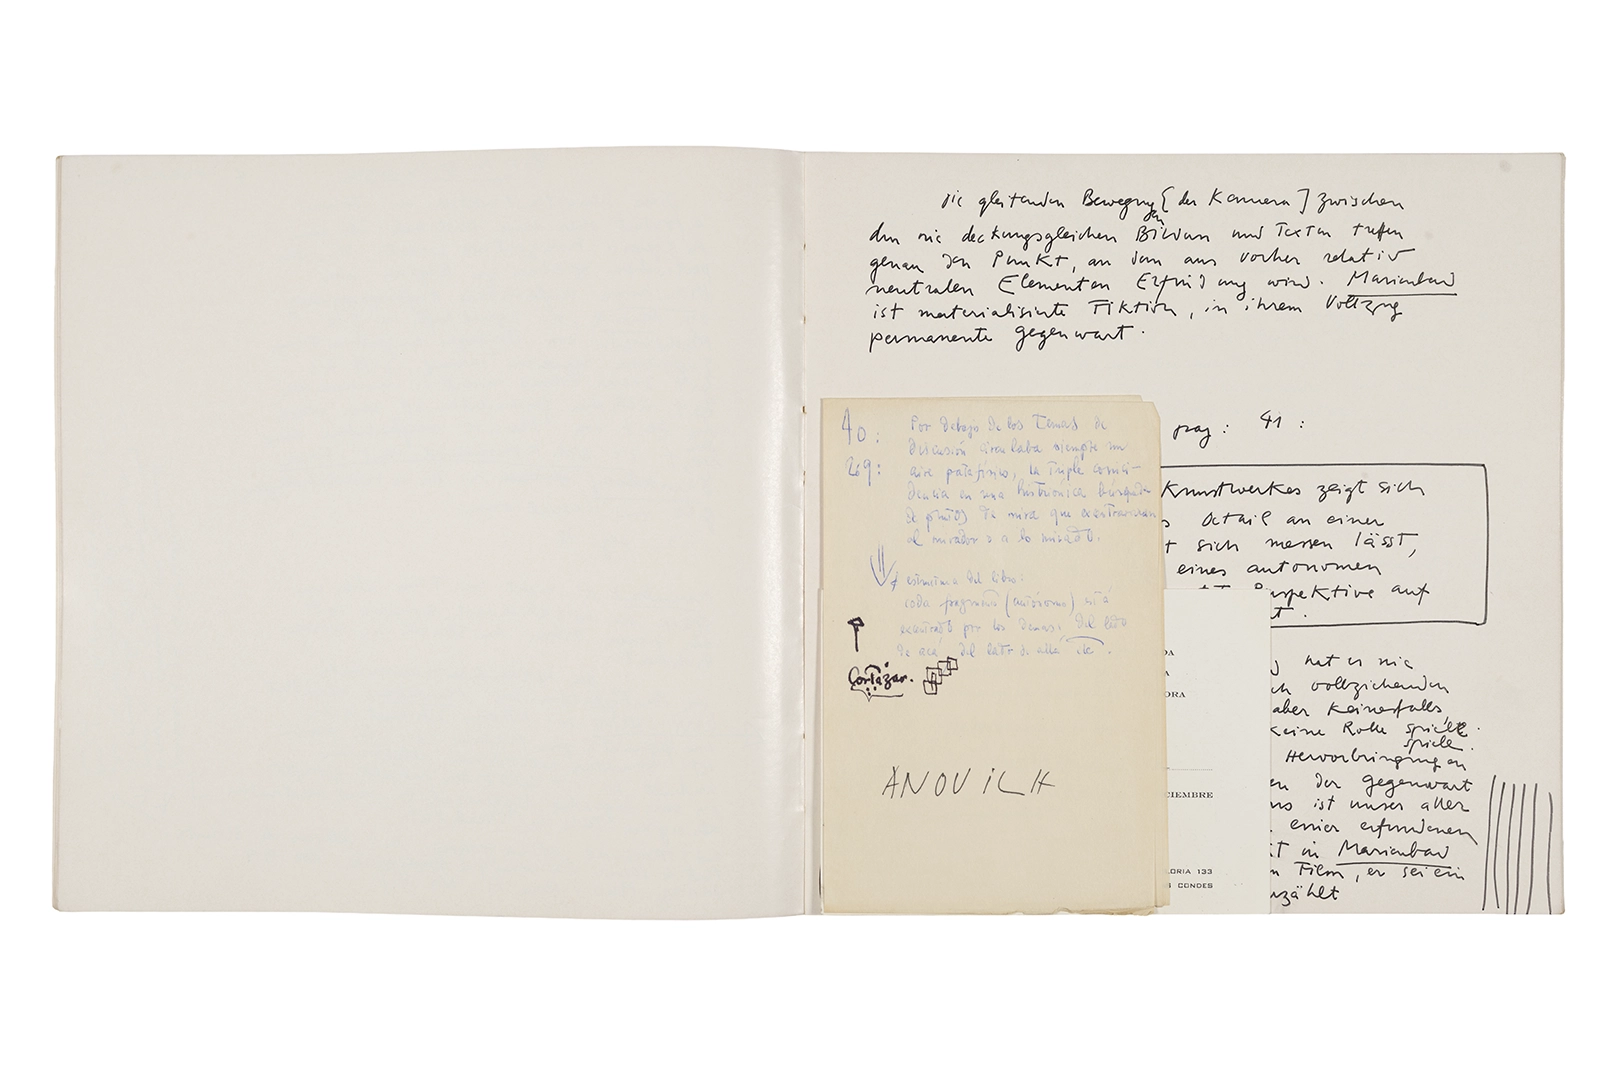 die gleitenden Bewegungen [der Kamera] zwischen
den nie deckungsgleichen Bildern und Texten treffen
genau den Punkt, an dem aus vorher relativ
neutralen Elementen Erfindung wird. Marienbad
ist materialisierte Fiktion, in ihrem Vollzug
permanente Gegenwart.
pag: 41:
Kunstwerkes zeigt sich
s Detail an einer
t sich messen lässt,
eines autonomen
Perspektive auf
t.
hat er nie
ch vollziehenden
aber keinerfalls
keine Rolle spielte.
spiele.
Hervorbringungen
en der Gegenwart
ns ist unser aller
einer erfundenen
kt in Marienbad
n Film, er sei ein
rzählt
40:
269:
Por debajo de los temas de
discusión circulaba siempre un
aire patafísico, la triple coinci-
dencia en una histriónica búsqueda
de puntos de mira que excentraran
al mirador o a lo mirado.
estructura del libro:
cada fragmento (autónomo) está
excentrado por los demás: del lado
de acá, del lado de allá etc.
Cortázar.
ANOUILH
DA
A
ORA
CIEMBRE
LORIA 133
S CONDES